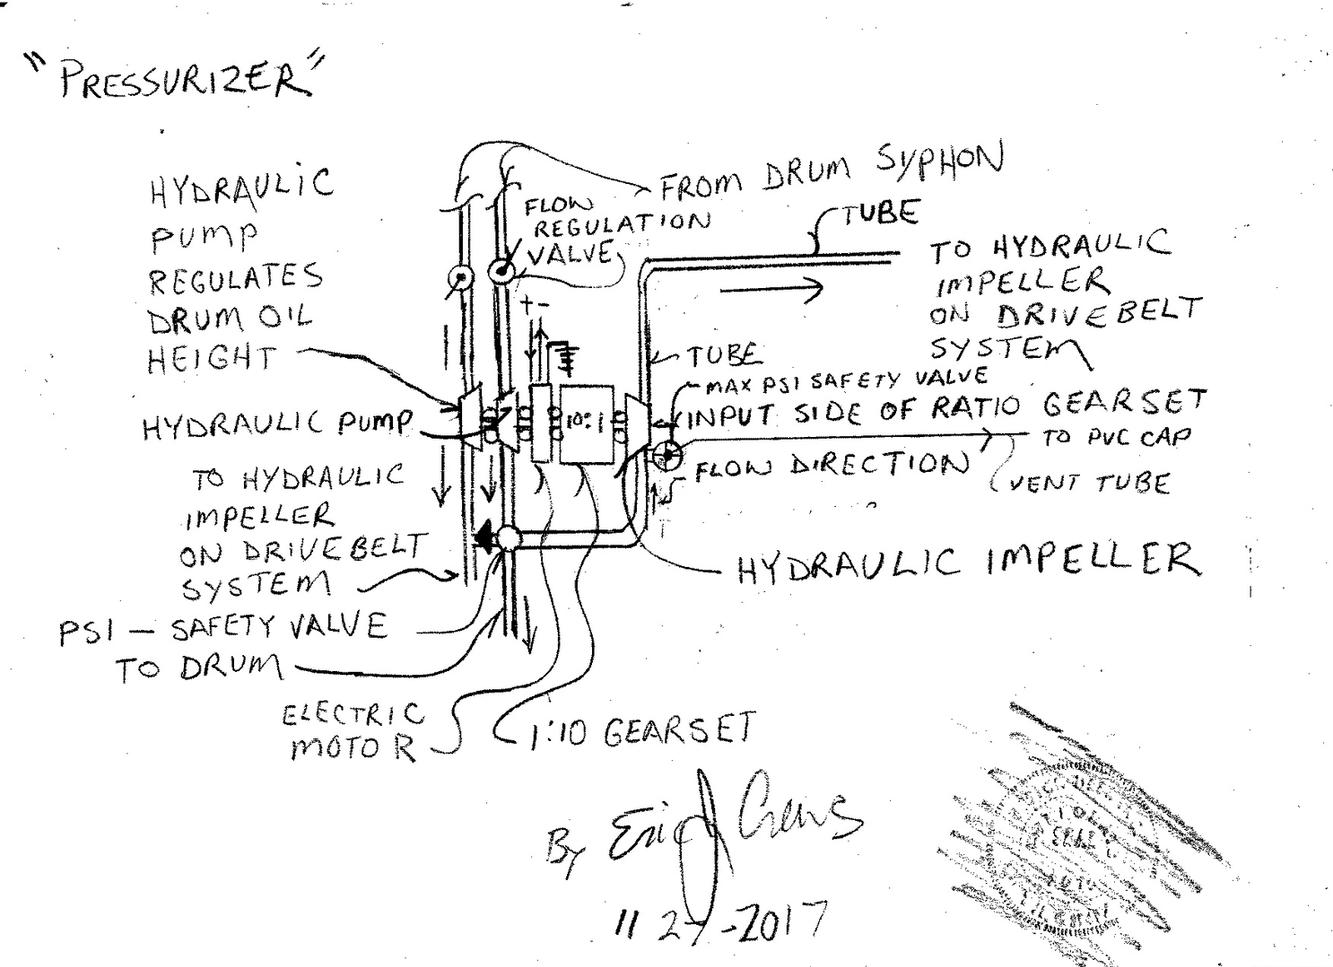 "PRESSURIZER"
HYDRAULIC
PUMP
REGULATES
DRUM OIL
HEIGHT
FROM DRUM SYPHON
FLOW
REGULATION
VALVE
TUBE
TO HYDRAULIC
IMPELLER
ON DRIVEBELT
SYSTEM
+ -
TUBE
MAX PSI SAFETY VALVE
INPUT SIDE OF RATIO GEARSET
10:1
HYDRAULIC PUMP
TO PVC CAP
FLOW DIRECTION
VENT TUBE
TO HYDRAULIC
IMPELLER
ON DRIVEBELT
SYSTEM
HYDRAULIC IMPELLER
PSI - SAFETY VALVE
TO DRUM
ELECTRIC
MOTOR
1:10 GEARSET
By Eric J Crews
11 27-2017